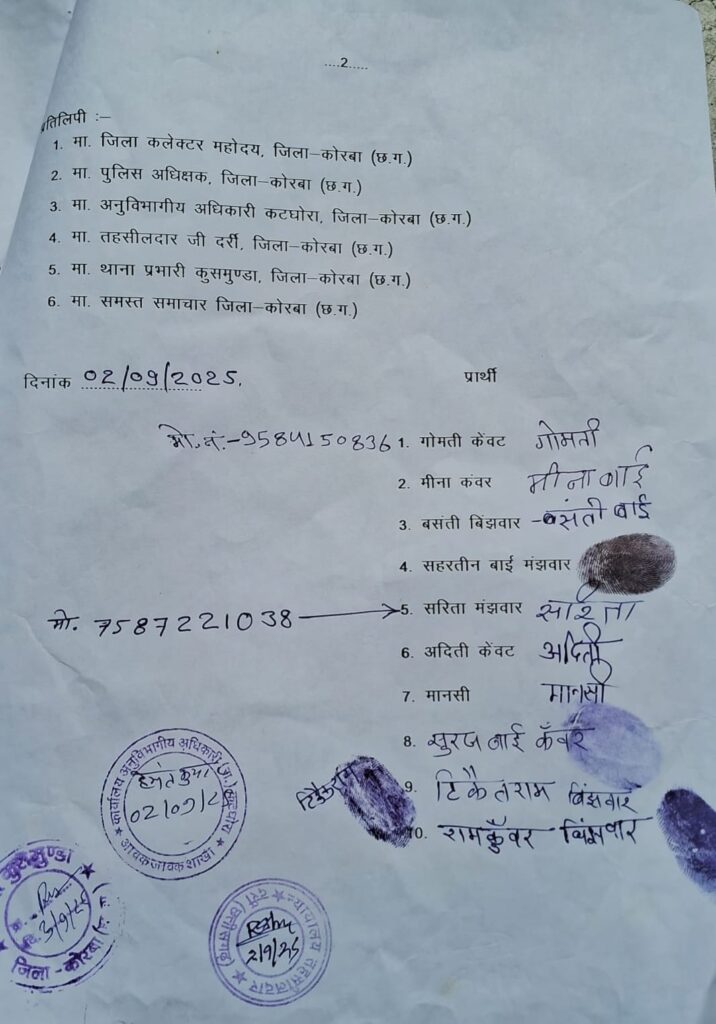 ....2.....
प्रतिलिपी :–
1. मा. जिला कलेक्टर महोदय, जिला–कोरबा (छ.ग.)
2. मा. पुलिस अधिक्षक, जिला–कोरबा (छ.ग.)
3. मा. अनुविभागीय अधिकारी कटघोरा, जिला–कोरबा (छ.ग.)
4. मा. तहसीलदार जी दर्री, जिला–कोरबा (छ.ग.)
5. मा. थाना प्रभारी कुसमुण्डा, जिला–कोरबा (छ.ग.)
6. मा. समस्त समाचार जिला–कोरबा (छ.ग.)
दिनांक 02/09/2025. प्रार्थी
मो. नं.-9584150836 1. गोमती केंवट गोमती
2. मीना कंवर मीना बाई
3. बसंती बिंझवार बसंती बाई
4. सहरतीन बाई मंझवार
मो. 7587221038 5. सरिता मंझवार सरिता
6. अदिती केंवट अदिती
7. मानसी मानसी
8. सुरज बाई कँवर
टिकैतराम 9. टिकैतराम बिंझवार
10. रामकुँवर बिंझवार
कार्यालय अनुविभागीय अधिकारी
02/09/2
आवकजावक शाखा
कुसमुण्डा
3/9/25
जिला - कोरबा
न्यायालय तहसीलदार
2/9/25
दर्री (छत्तीसगढ़)